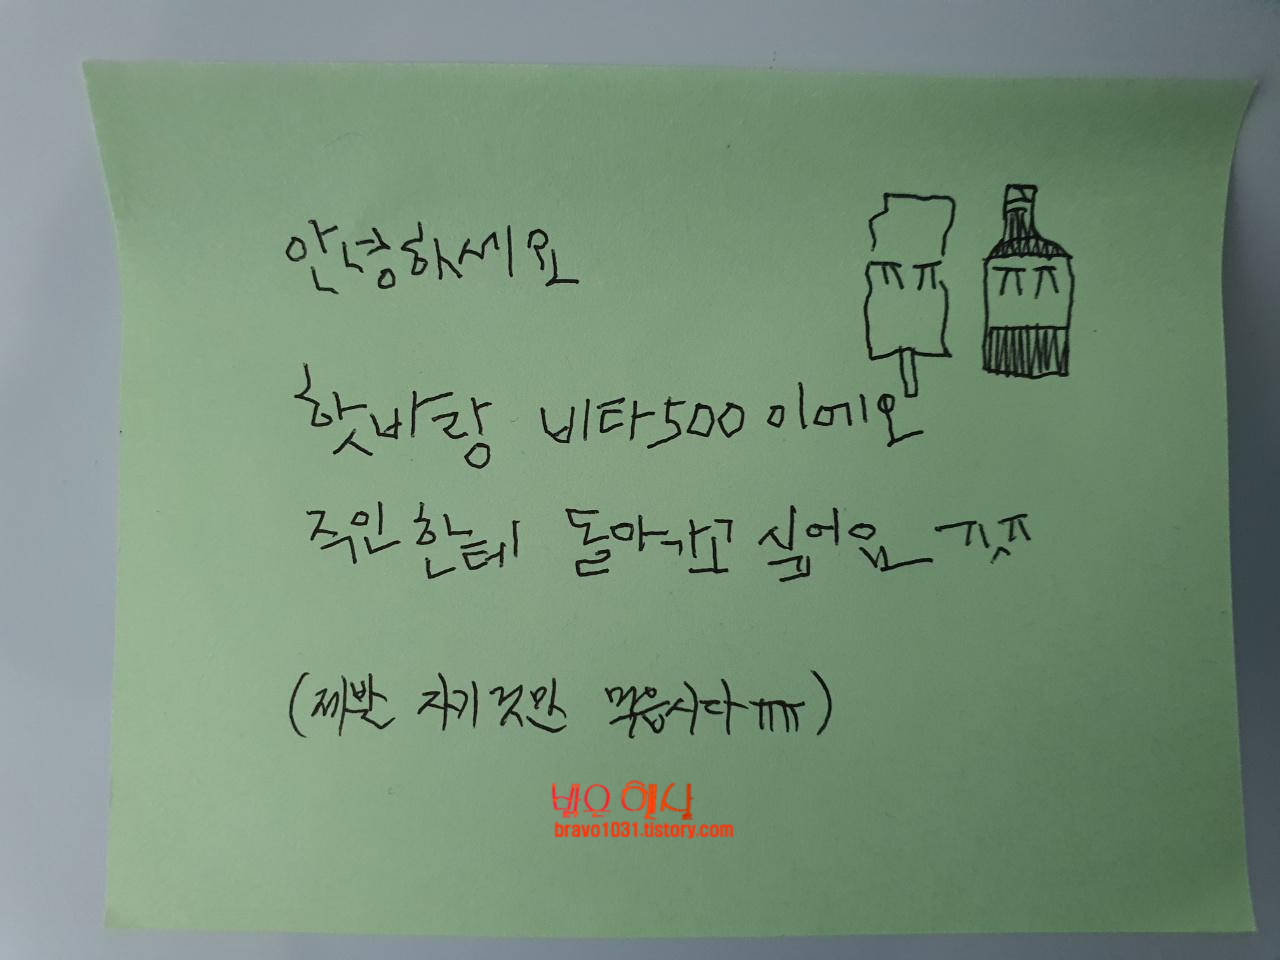 ㅠㅠ ㅠㅠ
안녕하세요
핫바랑 비타500이에요
주인한테 돌아가고 싶어요 ㅠㅅㅠ
(제발 자기것만 먹읍시다ㅠㅠ)
bravo1031.tistory.com